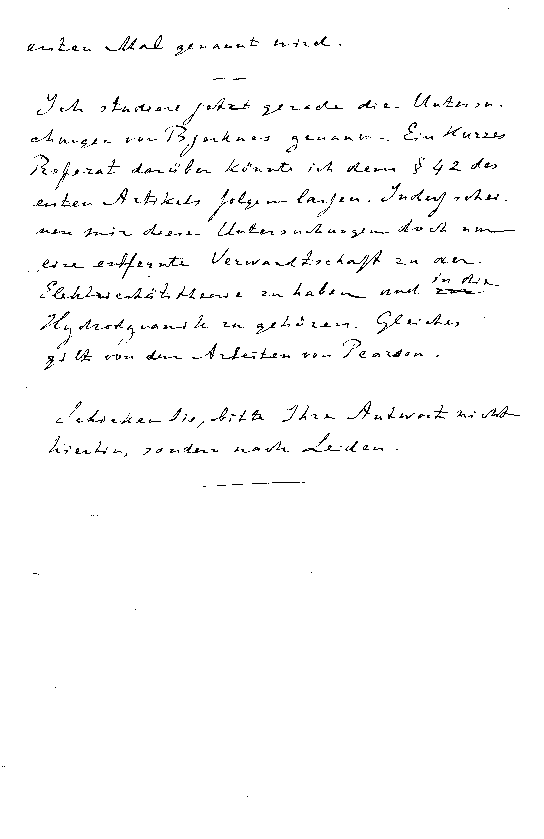 ersten Mal genannt wird.
Ich studiere jetzt gerade die Untersu-
chungen von Bjerknes genauer. Ein kurzes
Referat darüber könnte ich dem § 42 des
ersten Artikels folgen lassen. Indess schei-
nen mir diese Untersuchungen doch nur
eine entfernte Verwandtschaft zu der
Elektricitätstheorie zu haben und in die
Hydrodynamik zu gehören. Gleiches
gilt von den Arbeiten von Pearson.
Schicken Sie, bitte Ihre Antwort nicht
hierhin, sondern nach Leiden.